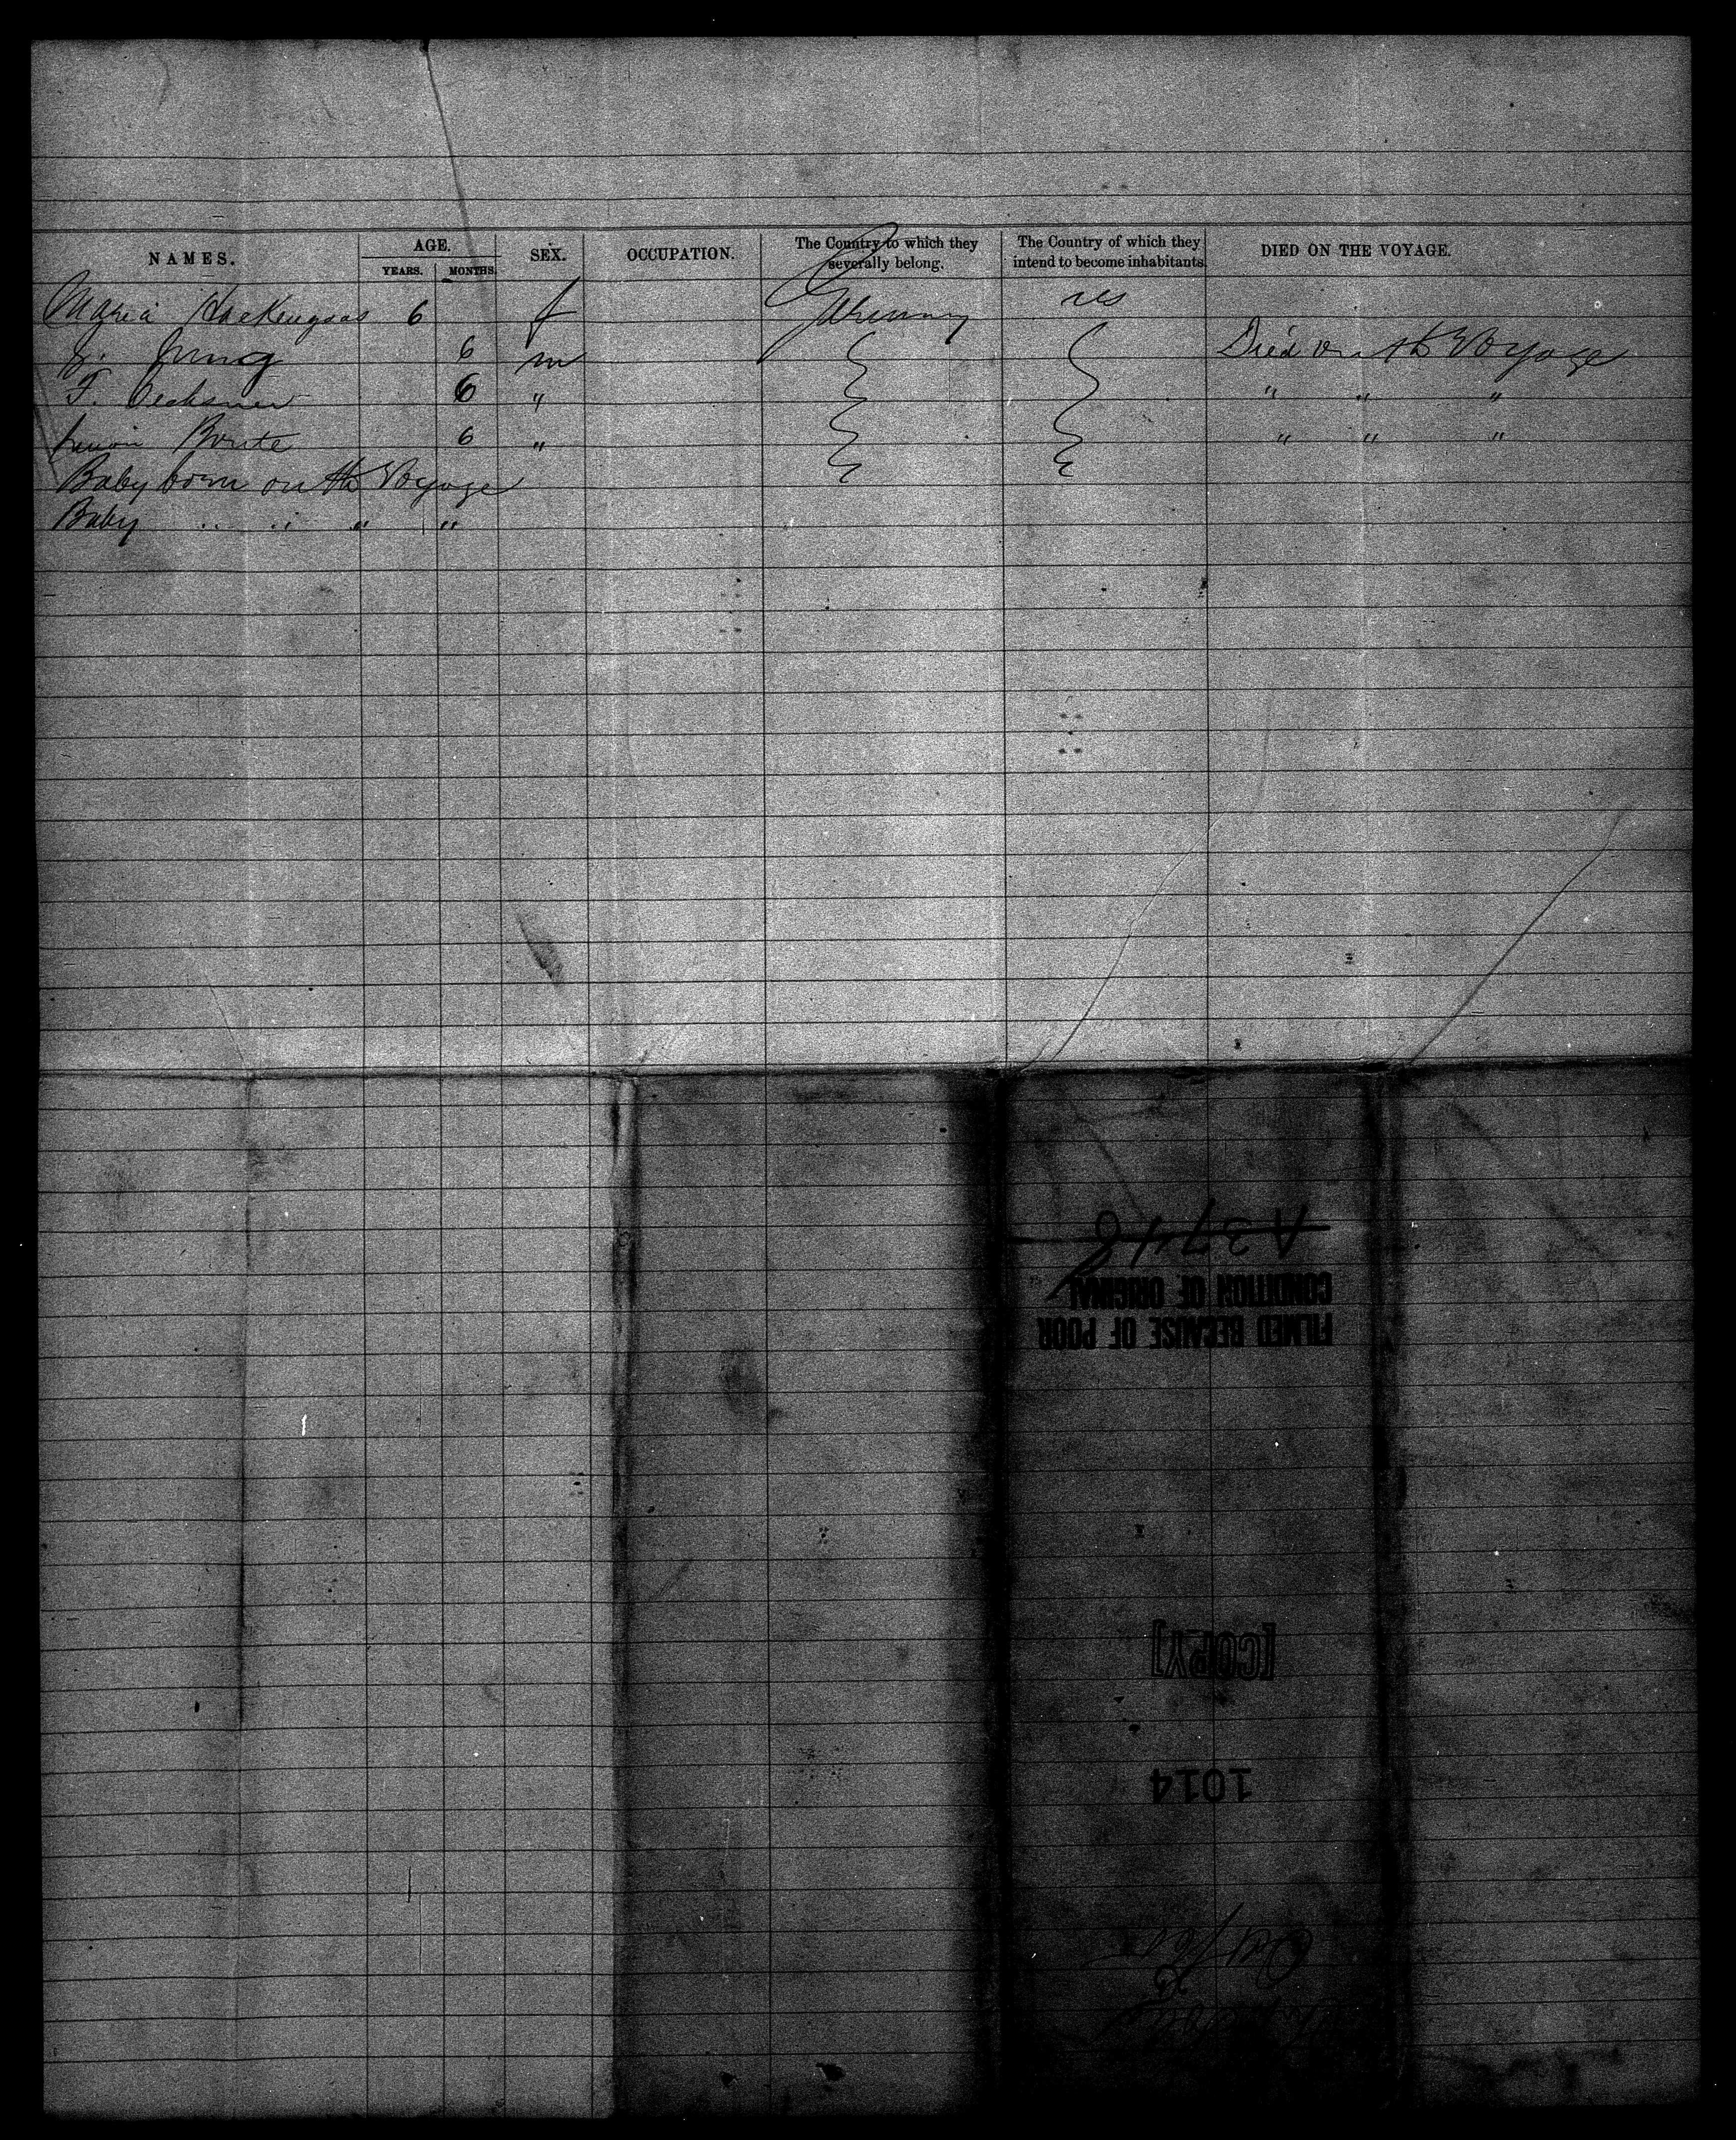 NAMES. AGE. SEX. OCCUPATION. The Country to which they severally belong. The Country of which they intend to become inhabitants. DIED ON THE VOYAGE.
YEARS. MONTHS.
Maria 6 f Germany US
Jung 6 m Died on the Voyage
F. 6 " " " "
6 " " " "
Baby born on the Voyage
Baby " " " "
A 3748
CONDITION OF ORIGINAL
FILMED BECAUSE OF POOR
[COPY]
1014